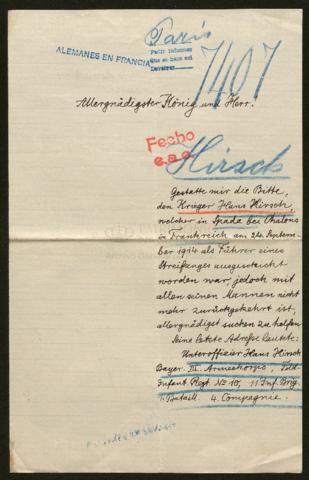 Paris
ALEMANES EN FRANCIA
Pedir informes
7407
Allergnädigster König und Herr!
Fecho
Hirsch
Gestatte mir die Bitte,
den Krieger Hans Hirsch,
welcher in Spada bei Chalons
in Frankreich am 24. Septem-
ber 1914 als Führer eines
Streifganges ausgeschickt
worden war, jedoch mit
allen seinen Mannen nicht
mehr zurückgekehrt ist,
allergnädigst suchen zu helfen.
Seine letzte Adresse lautete:
Unteroffizier Hans Hirsch
Bayer. III. Armeekorps, Feld
Infant. Regt. No 10, 11. Inf. Brig.
1. Bataill. 4. Compagnie.